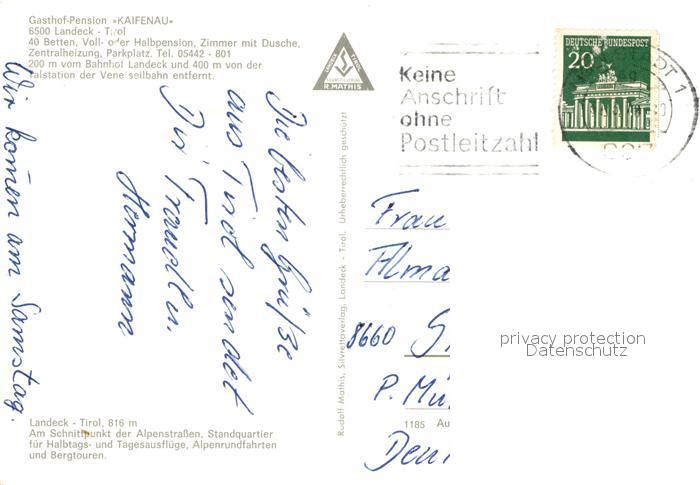 Gasthof-Pension »KAIFENAU«
6500 Landeck - Tirol
40 Betten, Voll- oder Halbpension, Zimmer mit Dusche,
Zentralheizung, Parkplatz. Tel. 05442 - 801
200 m vom Bahnhof Landeck und 400 m von der
Talstation der Venetseilbahn entfernt.
Wir komen am Samstag.
Die besten Grüße
aus Tirol sendet
Dir Traudl u.
Hermann
Landeck - Tirol, 816 m
Am Schnittpunkt der Alpenstraßen, Standquartier
für Halbtags- und Tagesausflüge, Alpenrundfahrten
und Bergtouren.
R. MATHIS
Rudolf Mathis, Silvrettaverlag, Landeck - Tirol. Urheberrechtlich geschützt!
Keine
Anschrift
ohne
Postleitzahl
DEUTSCHE BUNDESPOST
20
DT 1
Frau
Alma
8660
P. Mü
1185 Au
privacy protection
Datenschutz